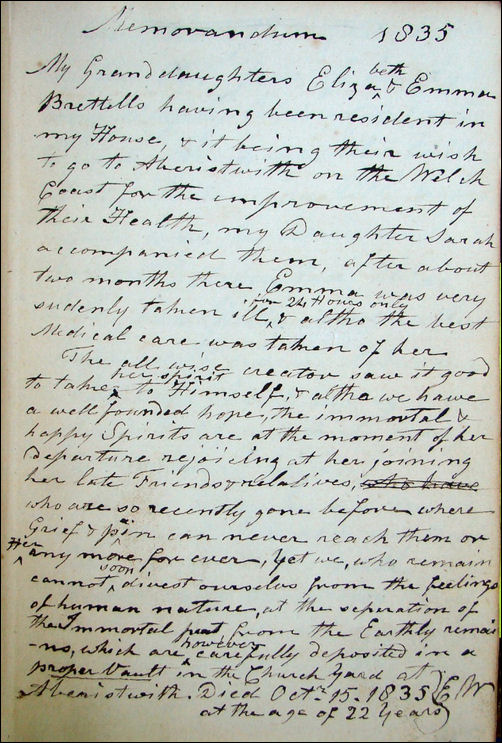 Memorandum 1835
My Granddaughters Eliza^beth & Emma
Brettells having been resident in
my House, & it being their wish
to go to Aberistwith on the Welch
Coast for the improvement of
their Health, my Daughter Sarah
accompanied them, after about
two months there Emma was very
sudenly taken ill, ^for 24 Hours only & altho the best
Medical care was taken of her
The all wise creator saw it good
to take ^her spirit to Himself, & altho we have
a well founded hope, the immortal &
happy Spirits are at the moment of her
departure rejoicing at her joining
her late Friends & relatives, who have
who are so recently gone before where
Grief & pain can never reach them or
^Her any more for ever, Yet we, who remain
cannot ^soon divest ourselves from the feelings
of human nature, at the separation of
the Immortal part from the Earthly remai
-ns, which are ^however carefully deposited in a
proper Vault in the Church Yard at
Aberistwith. Died Octr. 15 - 1835 E W
at the age of 22 Years